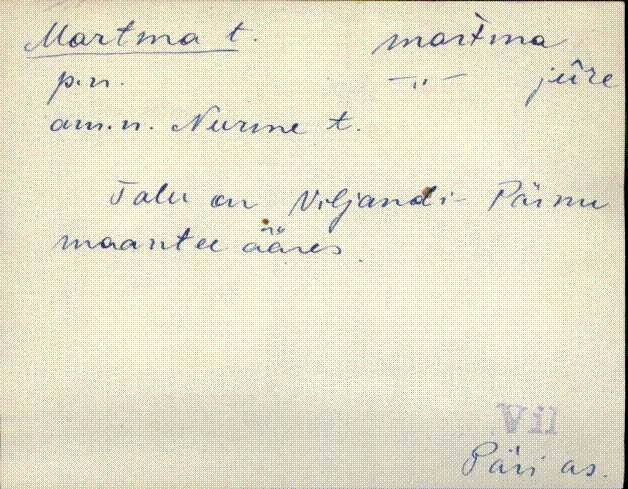 Martma t. mart̀ma
p.n. —"— jûre
am.n. Nurme t.
Talu on Viljandi-Pärnu
maantee ääres.
Vil
Päri as.